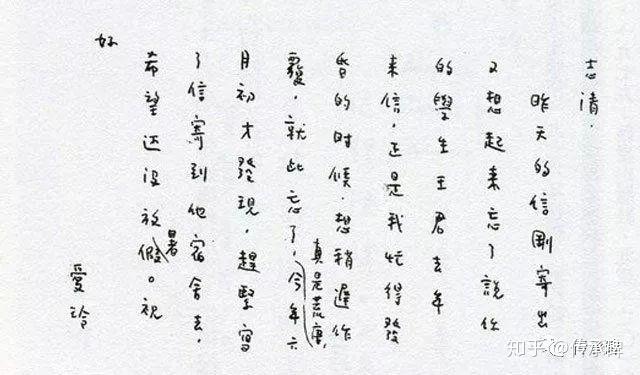 志清.
昨天的信剛寄出
又想起来忘了說你
的學生王君去年
来信,正是我忙得發
昏的时候,想稍遲作
覆,就此忘了,真是荒唐,今年六
月初才發現,趕緊寫
了信寄到他宿舍去,
希望还没放暑假。祝
好
愛玲
知乎 @传承碑